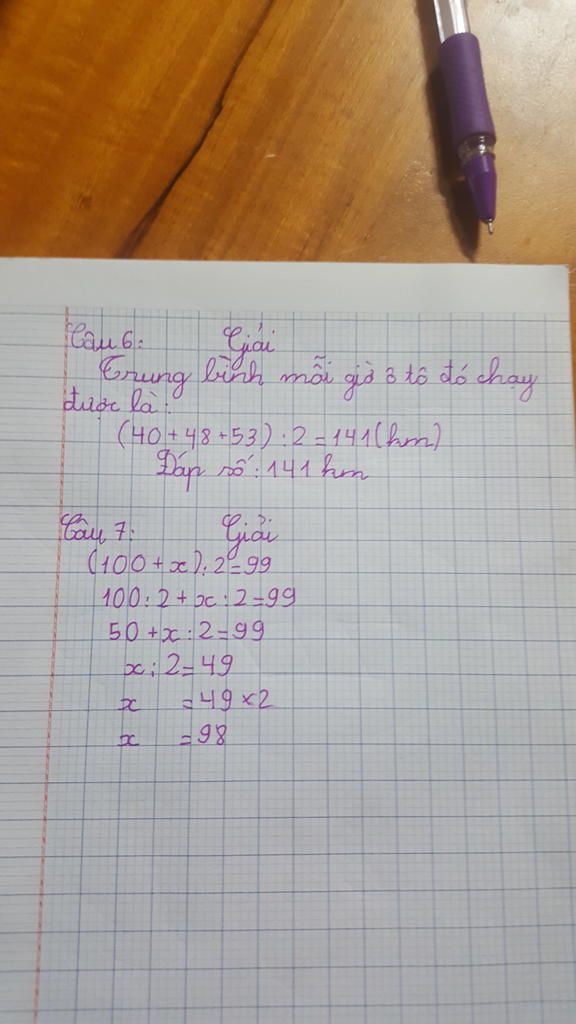 Câu 6: Giải
Trung bình mỗi giờ 3 tô đó chạy
được là:
(40 + 48 + 53) : 2 = 141 (km)
Đáp số : 141 km
Câu 7: Giải
(100 + x) : 2 = 99
100 : 2 + x : 2 = 99
50 + x : 2 = 99
x : 2 = 49
x = 49 × 2
x = 98